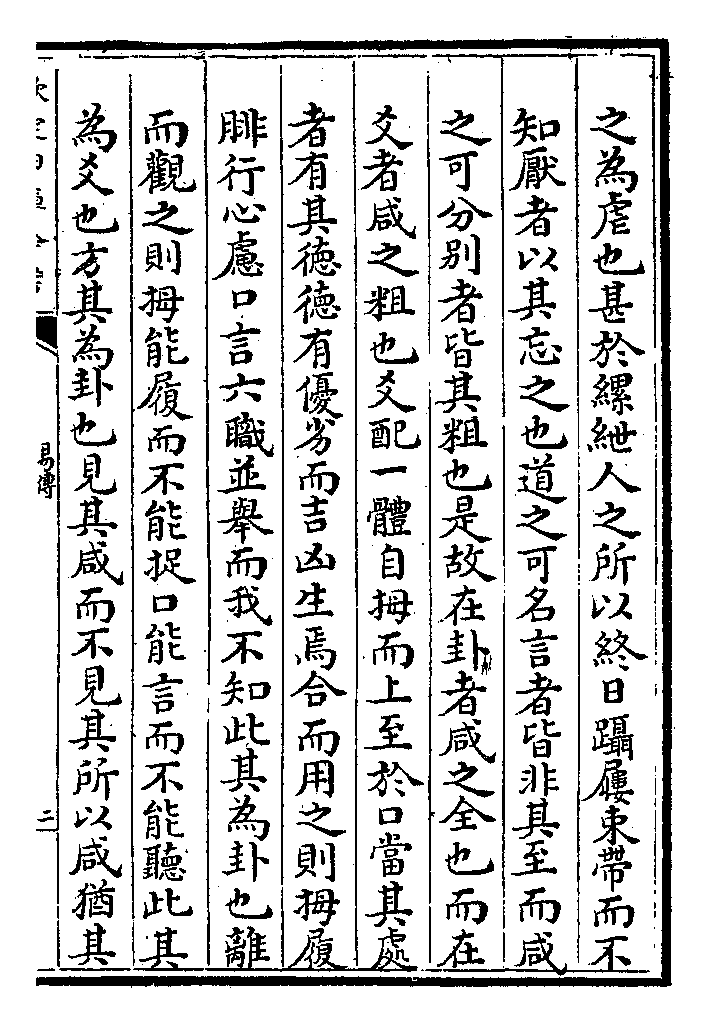 之為虐也甚於縲紲人之所以終日躡屨束帶而不
知厭者以其忘之也道之可名言者皆非其至而咸
之可分别者皆其粗也是故在卦者咸之全也而在
爻者咸之粗也爻配一體自拇而上至於口當其處
者有其德德有優劣而吉凶生焉合而用之則拇履
腓行心慮口言六職並舉而我不知此其為卦也離
而觀之則拇能履而不能捉口能言而不能聽此其
為爻也方其為卦也見其咸而不見其所以咸猶其
易傳
二